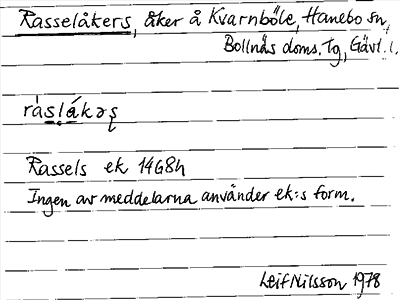 Rasselåkers, åker å Kvarnböle, Hanebo sn,
Bollnäs doms. Tg, Gävl. l.
ràsḷákəş
Rassels ek 14G8h
Ingen av meddelarna använder ek:s form.
Leif Nilsson 1978